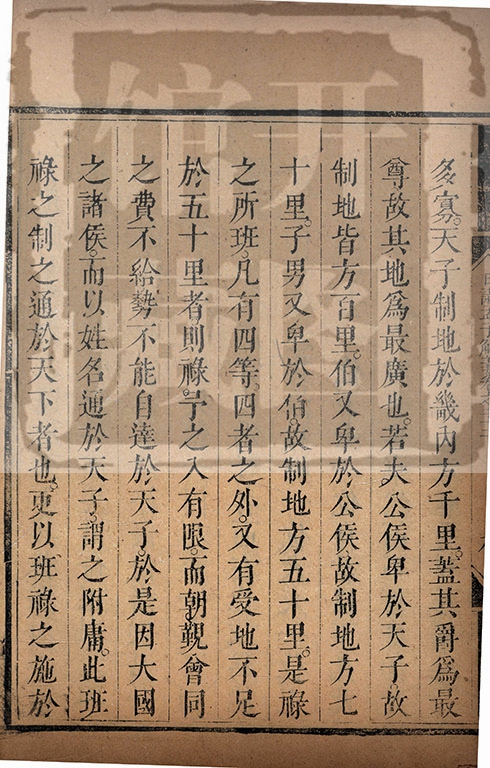 多寡。天子制地於畿內方千里。蓋其爵為最
尊故其地為最廣也。若夫。公侯卑於天子故
制地皆方百里。伯又卑於公侯故制地方七
十里。子男又卑於伯。故制地方五十里。是祿
之所班。凡有四等。四者之外。又有受地不足
於五十里者則祿。予之入有限。而朝覲會同
之費不給勢不能自達於天子。於是因大國
之諸侯。而以姓名通於天子。謂之附庸。此班
祿之制之通於天下者也。更以班祿之施於